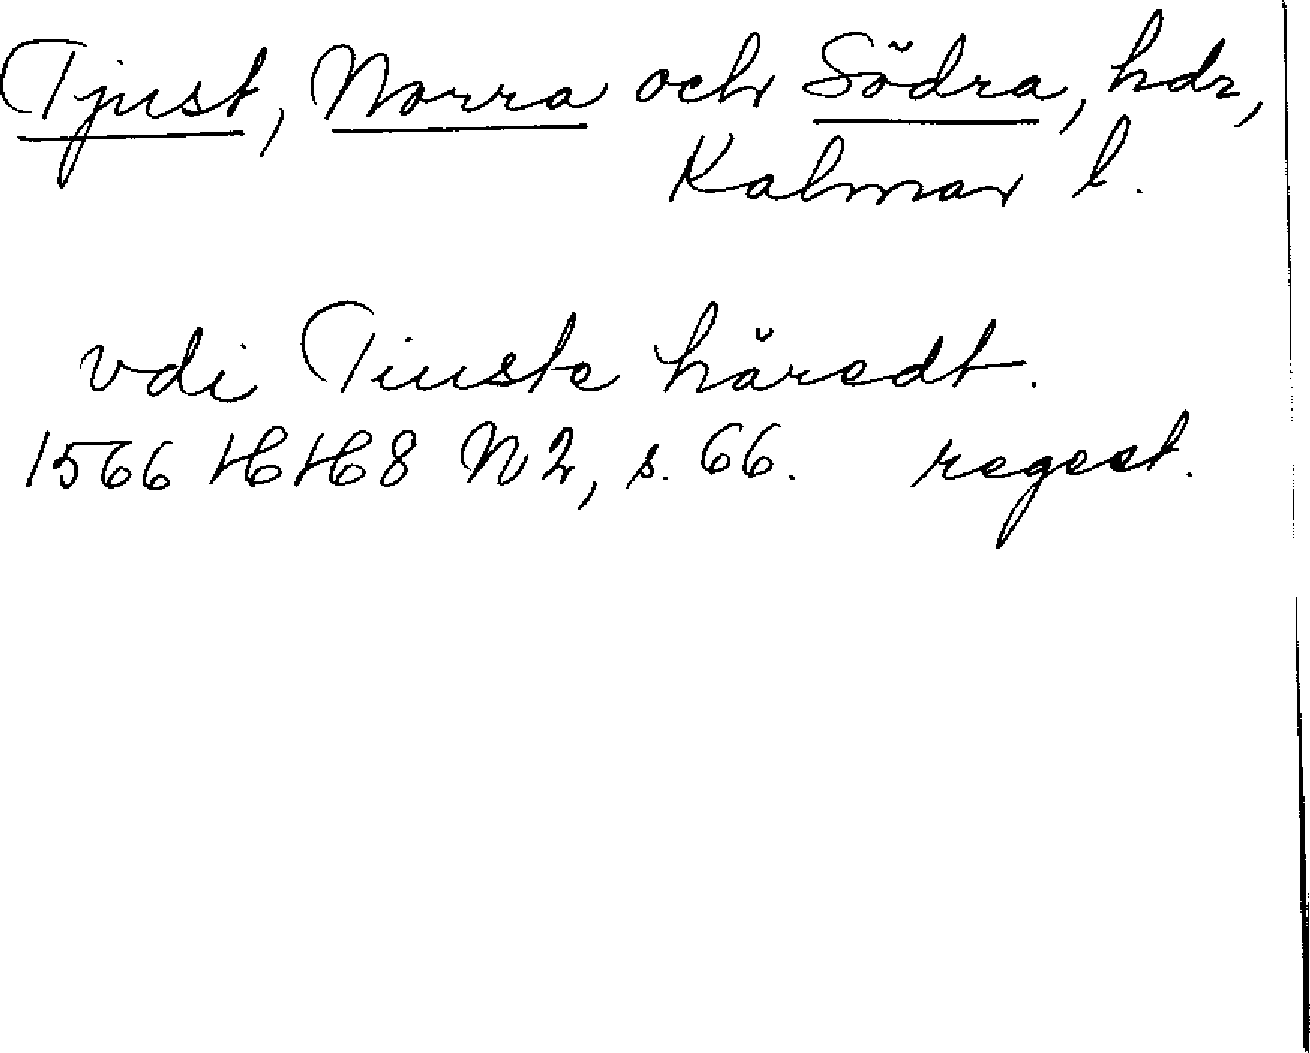 Tjust, Norra och Södra, hdr,
Kalmar l.
vdi Tiuste häredt.
1566 HH8 N2, s. 66. regest.